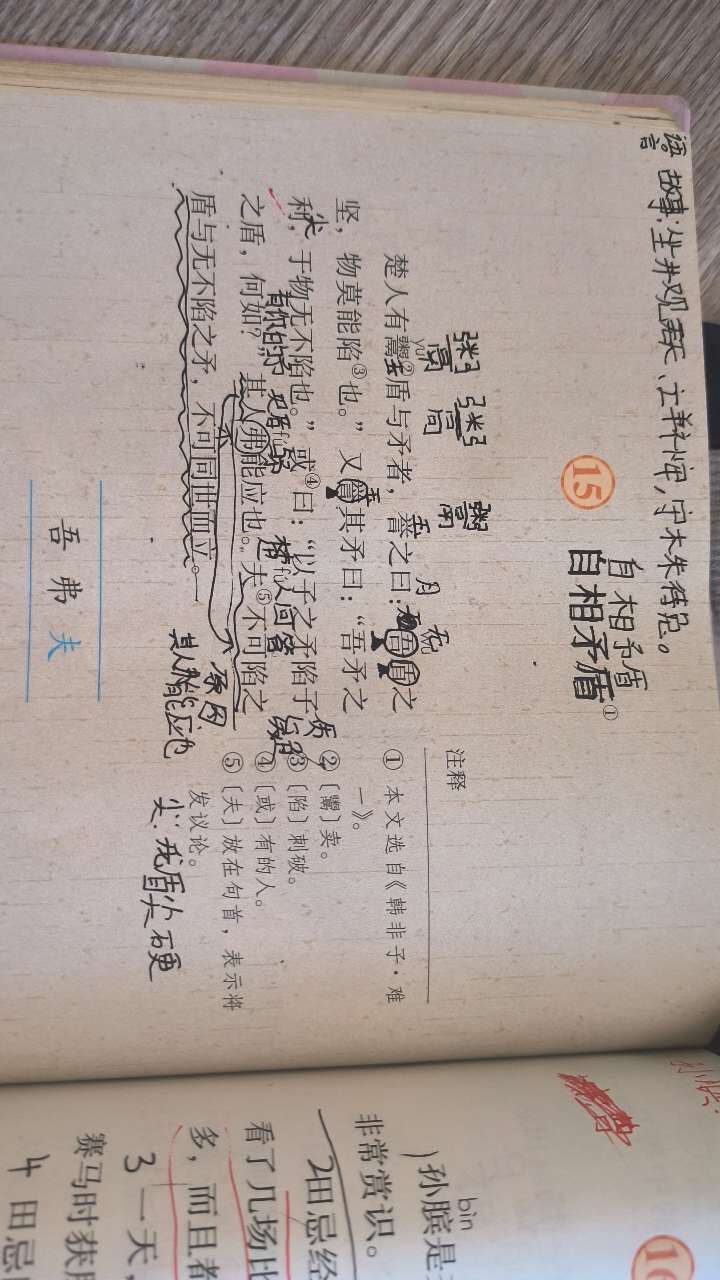 语言故事:坐井观天、亡羊补牢,守木朱待兔。
15
自相矛盾
自相矛盾①
楚人有鬻②盾与矛者,誉之曰:“吾盾之
坚,物莫能陷③也。”又誉其矛曰:“吾矛之
利,于物无不陷也。”或④曰:“以子之矛陷子
之盾,何如?”其人弗能应也。夫⑤不可陷之
盾与无不陷之矛,不可同世而立。
原因
其人弗能应也
吾 弗 夫
注释
① 本文选自《韩非子·难
一》。
② 〔鬻〕卖。
③ 〔陷〕刺破。
④ 〔或〕有的人。
⑤ 〔夫〕放在句首,表示将
发议论。
尖 我盾尖硬
16
bìn
孙膑是
非常赏识。
2田忌经
看了几场比
多,而且者
3一天,
赛马时获
4田忌